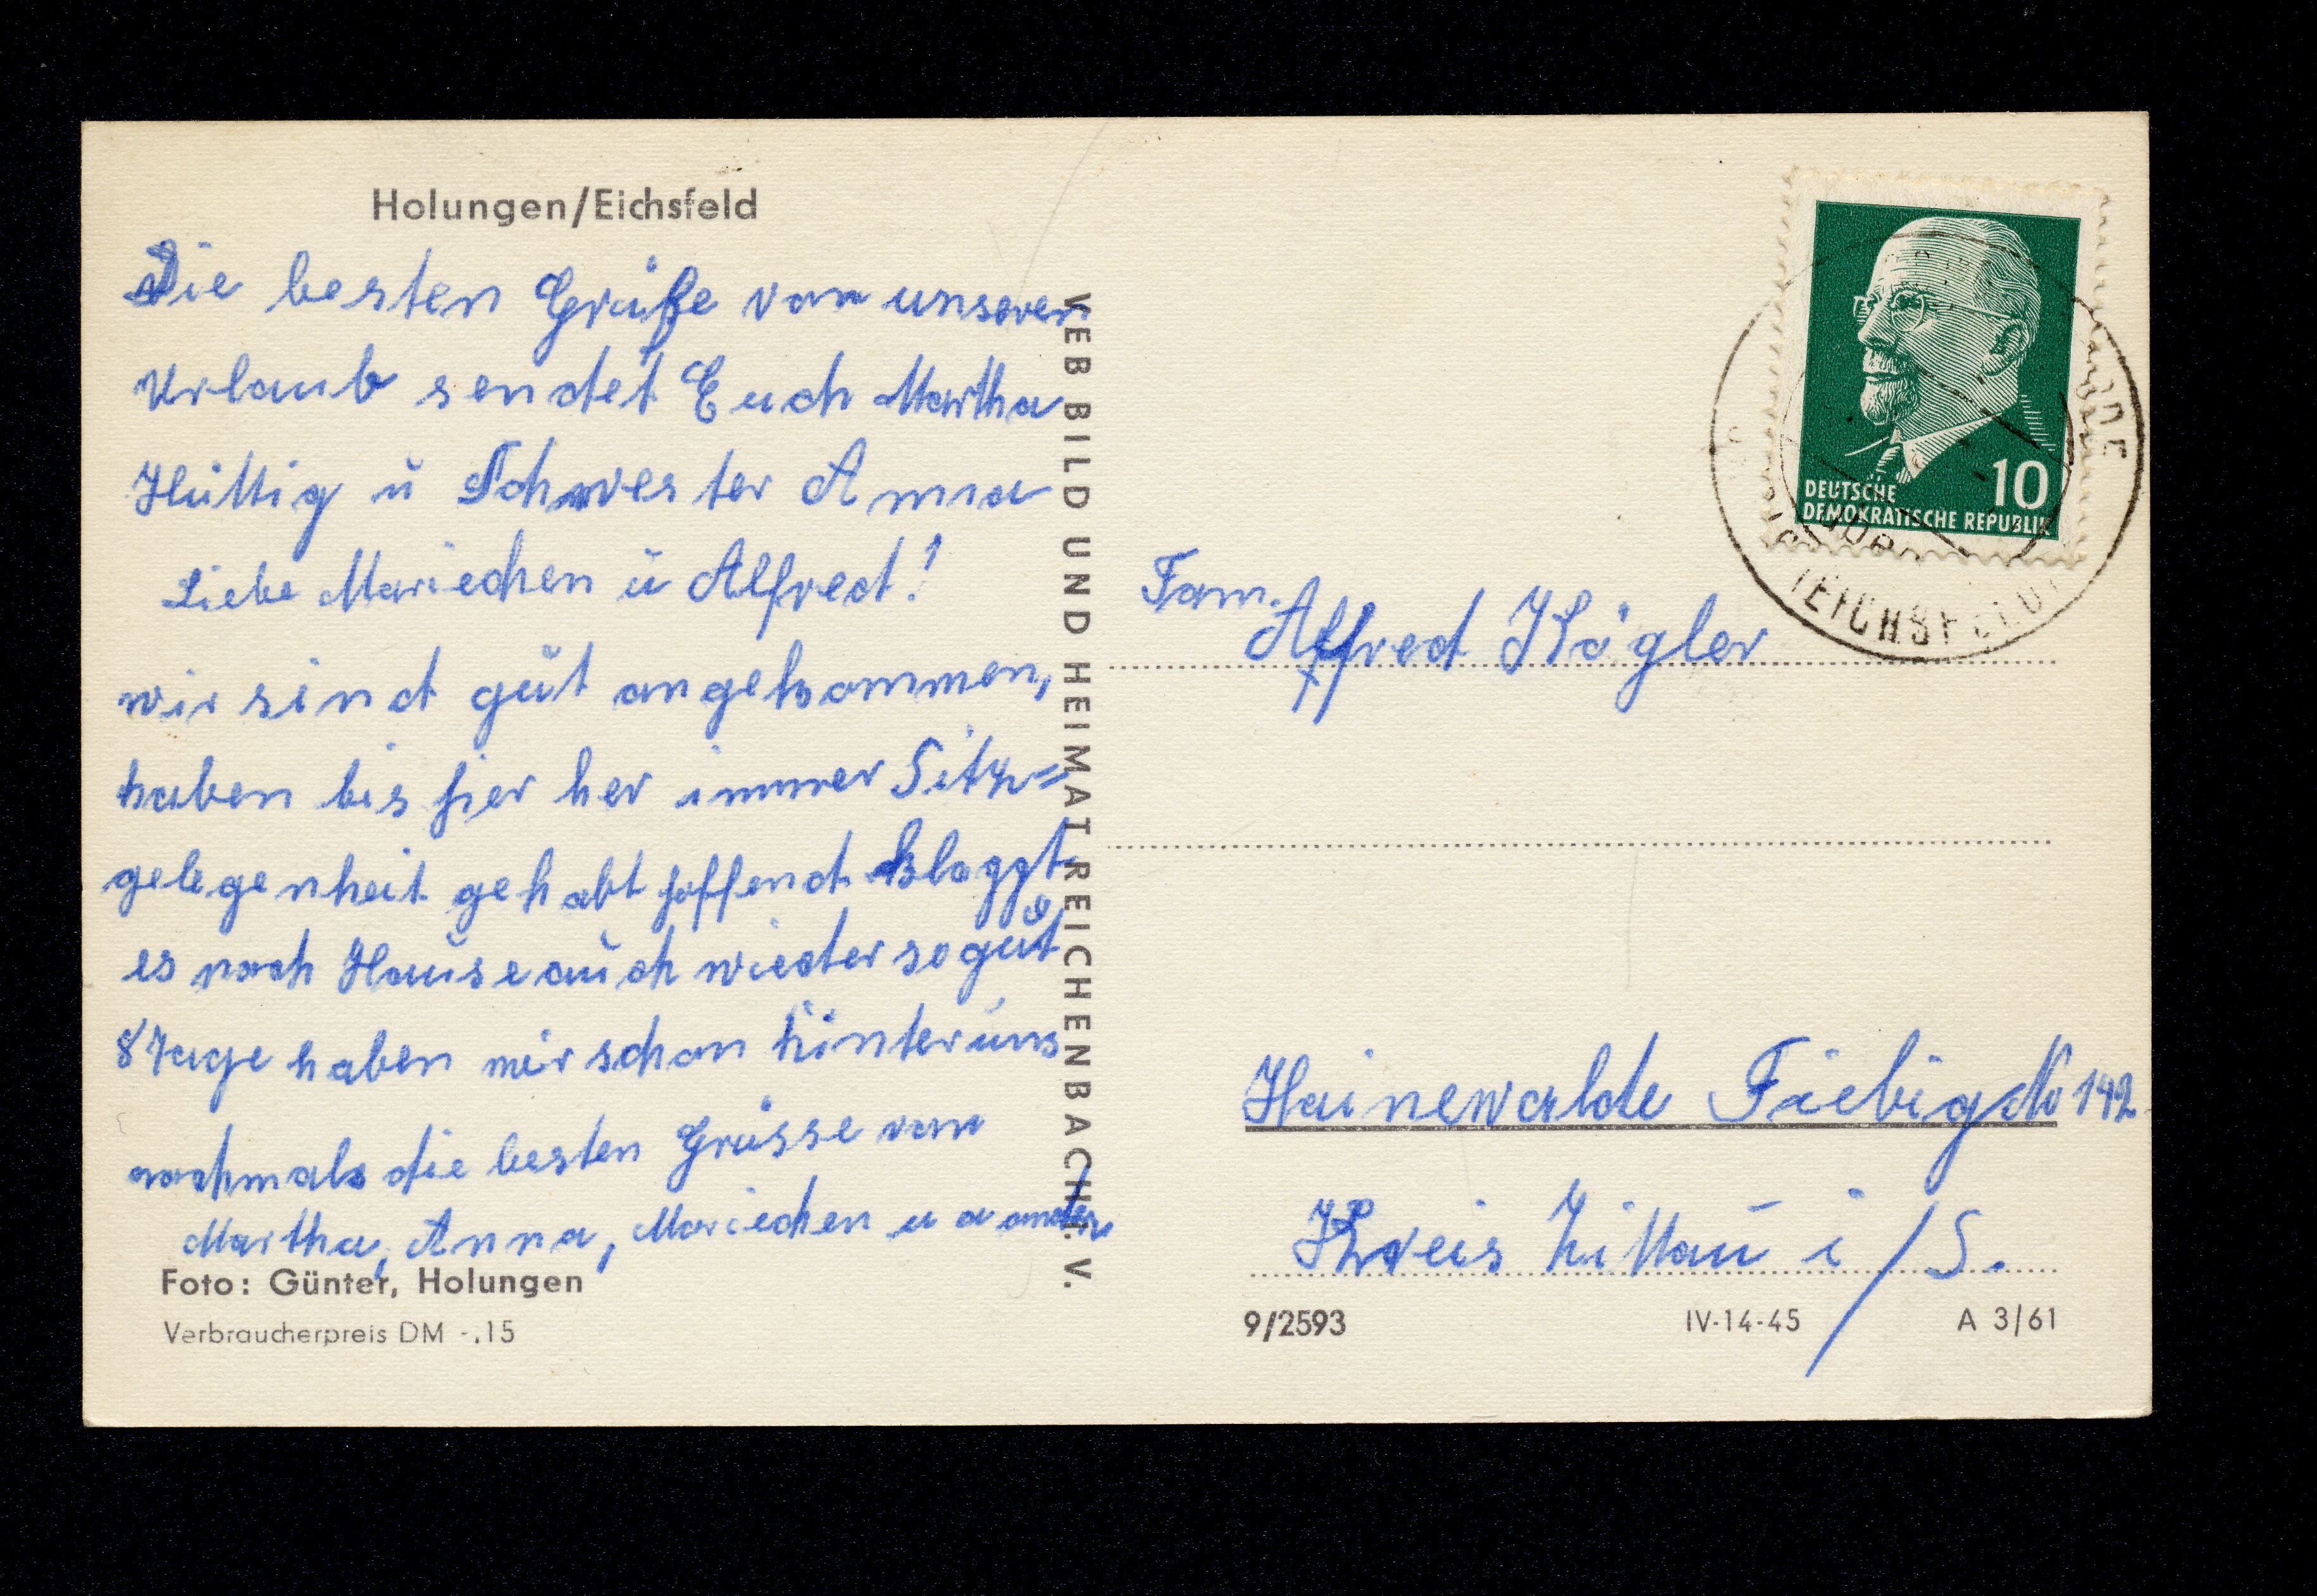 Holungen/Eichsfeld
Die besten Grüße von unseren
Urlaub sendet Euch Martha
Hüttig u Schwester Anna
Liebe Mariechen u Alfred!
wir sind gut angekommen,
haben bis hier her immer Sitz=
gelegenheit gehabt hoffend kloppt
es nach Hause auch wieder so gut
8 Tage haben wir schon hinter uns
nochmals die besten Grüsse von
Martha, Anna, Mariechen u a
Foto: Günter, Holungen
Verbraucherpreis DM -.15
VEB BILD UND HEIMAT REICHENBACH I. V.
10
DEUTSCHE
DEMOKRATISCHE REPUBLIK
Fam.
Alfred Kögler
Hainewalde Fiebig No 142
Kreis Zittau i/S.
9/2593 IV-14-45 A 3/61